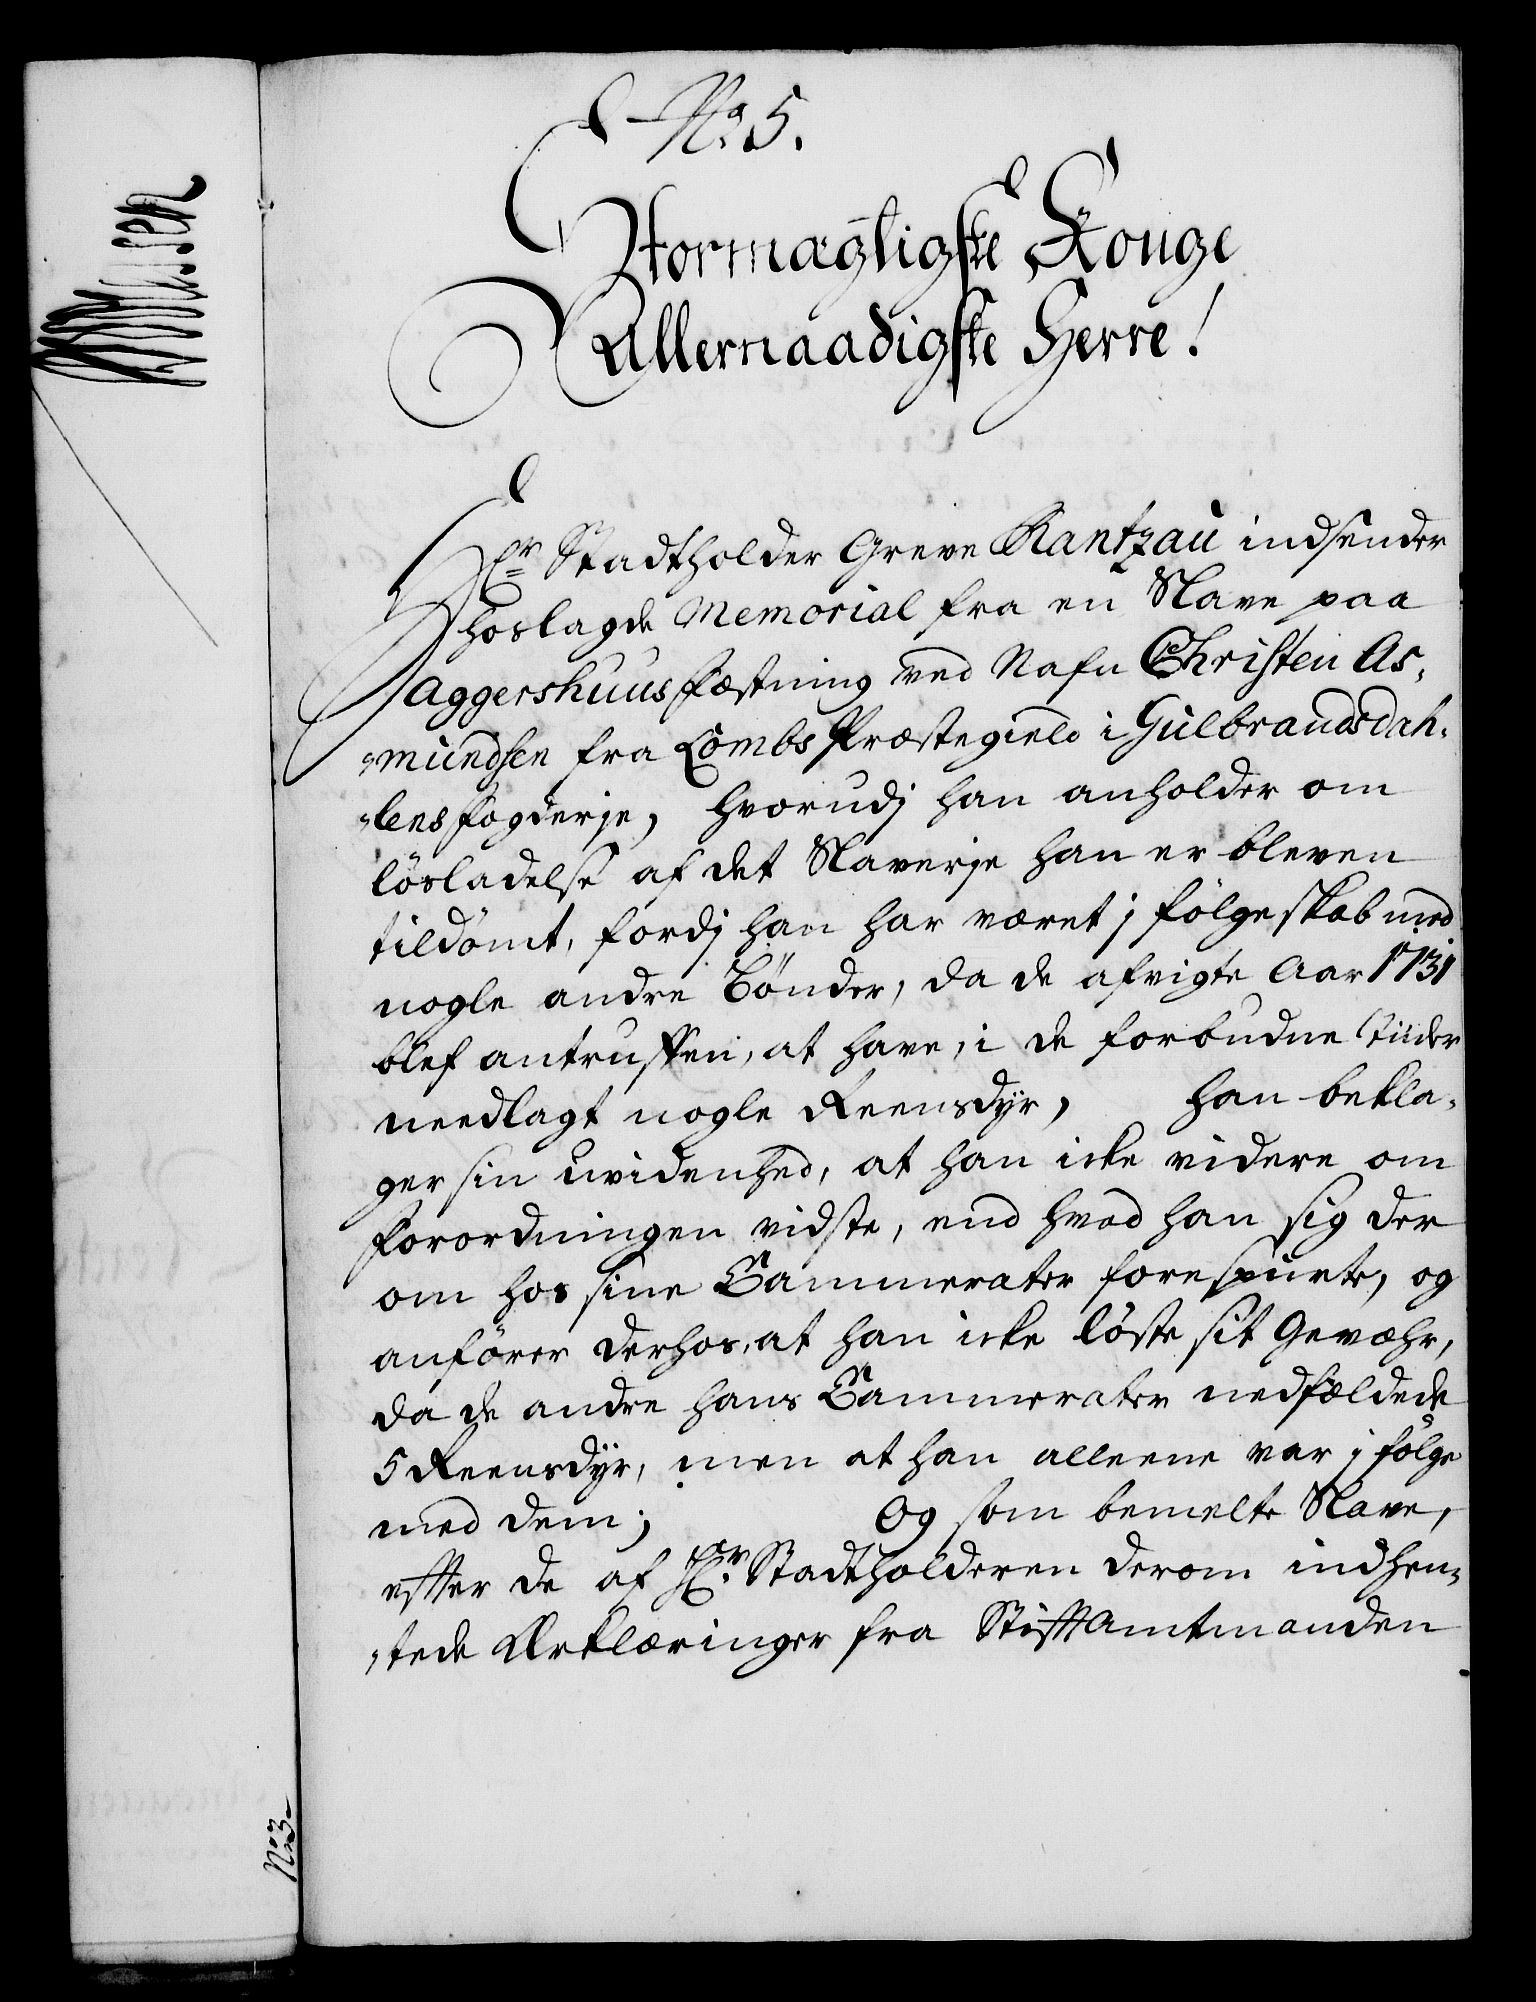 No 5.
Stormægtigste Konge
Allernaadigste Herre!
Hr Stadtholder Greve Rantzau indsender
hoslagde Memorial fra en Slave paa
Aggershuus Fæstning ved Nafn Christen As-
mundsen fra Lombs Præstegield i Gulbrandsdah-
lens Fogderje, hvorudj han anholder om
lösladelse af det Slaverje han er bleven
tildömt, fordj han har været j fölgeskab med
nogle andre Bönder, da de afvigte Aar 1731
blef antruffen, at have, i de forbudne Tiider
needlagt nogle Reensdÿr, han bekla-
ger sin uvidenhed, at han icke videre om
Forordningen vidste, end hvad han sig der
om hos sine Cammerater forespurte, og
anförer derhos, at han icke löste sit Gevæhr,
da de andre hans Cammerater nedfældede
5 Reensdÿr, men at han alleene var j fölge
med dem; Og som bemelte Slave,
effter de af Hr. Stadtholderen derom indhen-
tede Erklæringer fra Stifftamtmanden
No 3